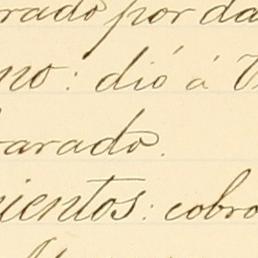 rado por da
no: dió á V
arado.
ientos: cobro